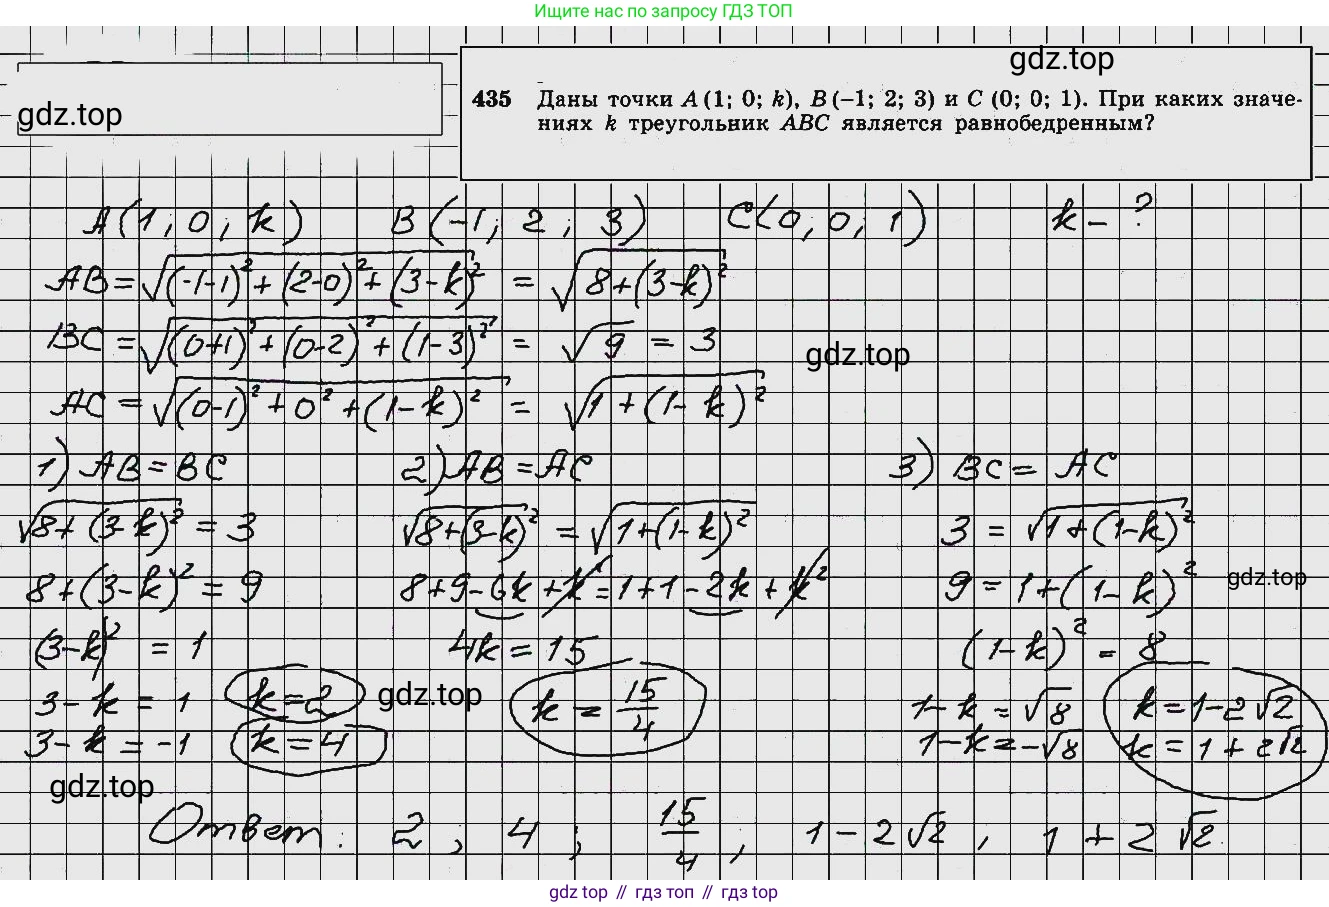 Ищите нас по запросу ГДЗ ТОП
gdz.top
gdz.top
435 Даны точки A (1; 0; k), B (–1; 2; 3) и C (0; 0; 1). При каких значе-
ниях k треугольник ABC является равнобедренным?
A (1; 0; k) B (-1; 2; 3) C (0; 0; 1) k - ?
AB = √((-1-1)² + (2-0)² + (3-k)²) = √(8+(3-k)²)
BC = √((0+1)² + (0-2)² + (1-3)²) = √9 = 3
gdz.top
AC = √((0-1)² + 0² + (1-k)²) = √(1+(1-k)²)
1) AB = BC 2) AB = AC 3) BC = AC
√(8+(3-k)²) = 3 √(8+(3-k)²) = √(1+(1-k)²) 3 = √(1+(1-k)²)
8+(3-k)² = 9 8+9-6k+k² = 1+1-2k+k² 9 = 1+(1-k)²
gdz.top
(3-k)² = 1 4k = 15 (1-k)² = 8
3-k = 1 k=2 gdz.top k = 15/4 1-k = √8 k = 1-2√2
3-k = -1 k=4 1-k = -√8 k = 1+2√2
gdz.top
Ответ: 2; 4; 15/4, 1-2√2, 1+2√2.
gdz.top // гдз топ // гдз top